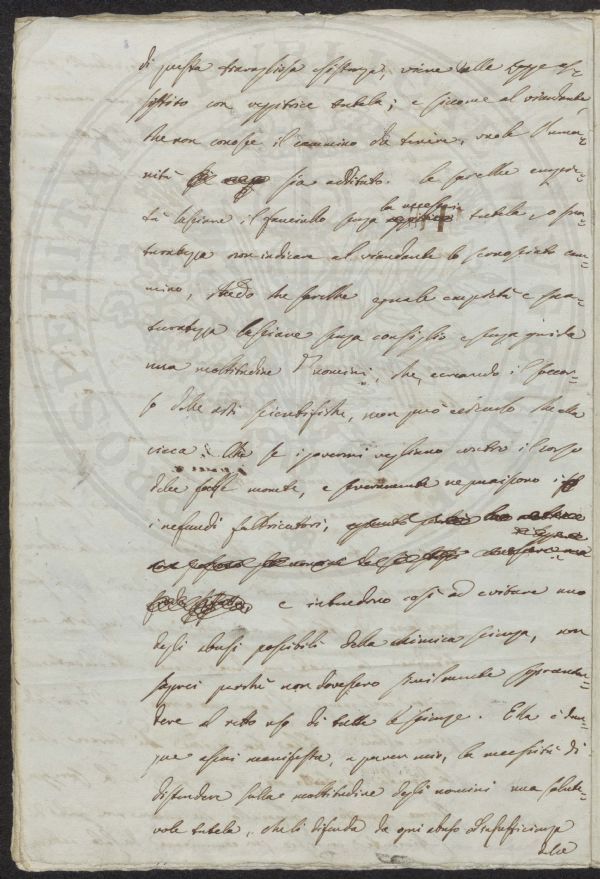 di questa travagliosa esistenza, viene dalla Legge as=
sistito con vegliatrice tutela; e siccome al viandante,
che non conosce il cammino da tenere, vuole l'uma=
nità sia additato. Se sarebbe empie=
tà lasciare il fanciullo senza la necessaria tutela, o sna=
turatezza non indicare al viandante lo sconosciuto cam=
mino, credo che sarebbe eguale empietà e sna=
turatezza lasciare senza consiglio e senza guida
una moltitudine d'uomini, che, cercando il soccor=
so delle arti scientifiche, non può esserlo che alla
cieca. Che se i governi vegliano contro il corso
delle false monete, e severamente ne puniscono i
i nefandi fabbricatori,
e intendono così ad evitare uno
degli abusi possibili della chimica scienza, non
saprei perchè non dovessero similmente sopranten=
dere al retto uso di tutte le scienze. Ella è dun=
que assai manifesta, a parer mio, la necessità di
distendere sulla moltitudine degli uomini una salute=
vole tutela, che li difenda da ogni abuso od insufficienza
delle